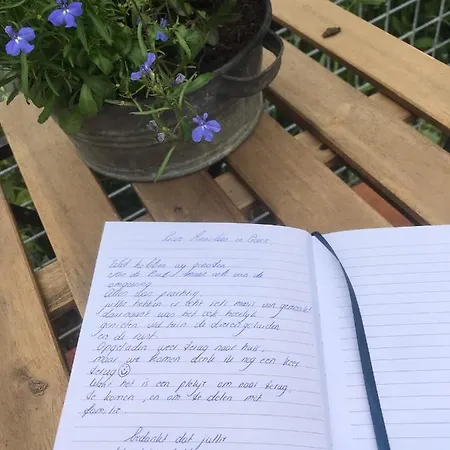 Lieve Anneloes en Geer.
Wat hebben wij genoten
van de B&B maar ook van de
omgeving.
Alles dan prachtig,
jullie hebben er echt iets moois van gemaakt
daarnaast was het ook heerlijk
genieten van tuin de dieren geluiden
en de rust.
Opgeladen weer terug naar huis,
maar we komen denk ik nog een keer
terug ☺
Want het is een plekje om naar terug
te komen, en om te delen met
familie.
Bedankt dat jullie